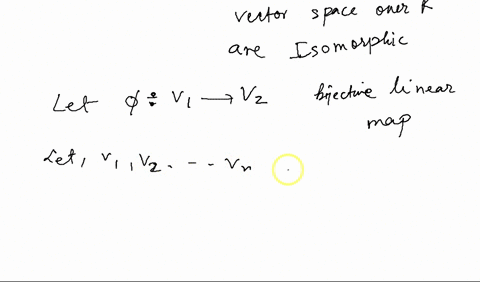 vector space over K
are Isomorphic
Let φ : V1 → V2 bijective linear
map
Let, v1, v2, - - vn